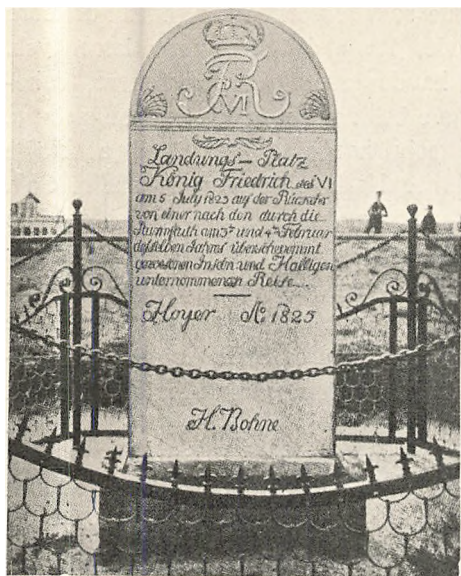 FR VI
Landungs- Platz
König Friedrich des VI
am 5 July 1825 auf der Rückkehr
von einer nach den durch die
Sturmfluth am 3t und 4t Februar
desselben Jahrs überschwemmt
gewesenen Inseln und Halligen
unternommenen Reise.
Hoyer Ao 1825
H. Bohne